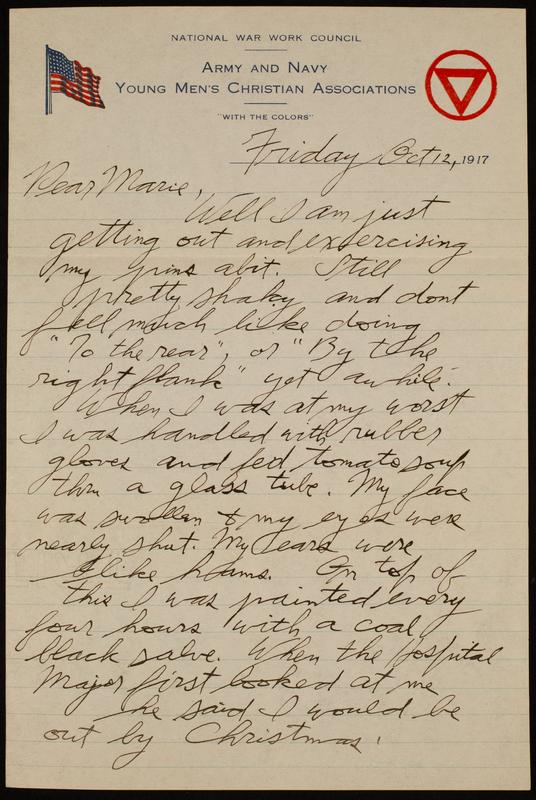 NATIONAL WAR WORK COUNCIL
ARMY AND NAVY
YOUNG MEN'S CHRISTIAN ASSOCIATIONS
"WITH THE COLORS"
Friday Oct 12, 1917
Dear Marie,
Well I am just
getting out and exsercising
my pins abit. Still
pretty shaky and dont
feel much like doing
"To the rear", or "By the
right flank" yet awhile.
When I was at my worst
I was handled with rubber
gloves and fed tomato soup
thru a glass tube. My face
was swollen & my eyes were
nearly shut. My ears were
like hams. On top of
this I was painted every
four hours with a coal
black salve. When the Hospital
Major first looked at me
he said I would be
out by Christmas.